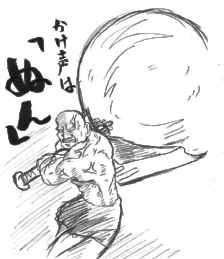 かけ声は
「ぬん」